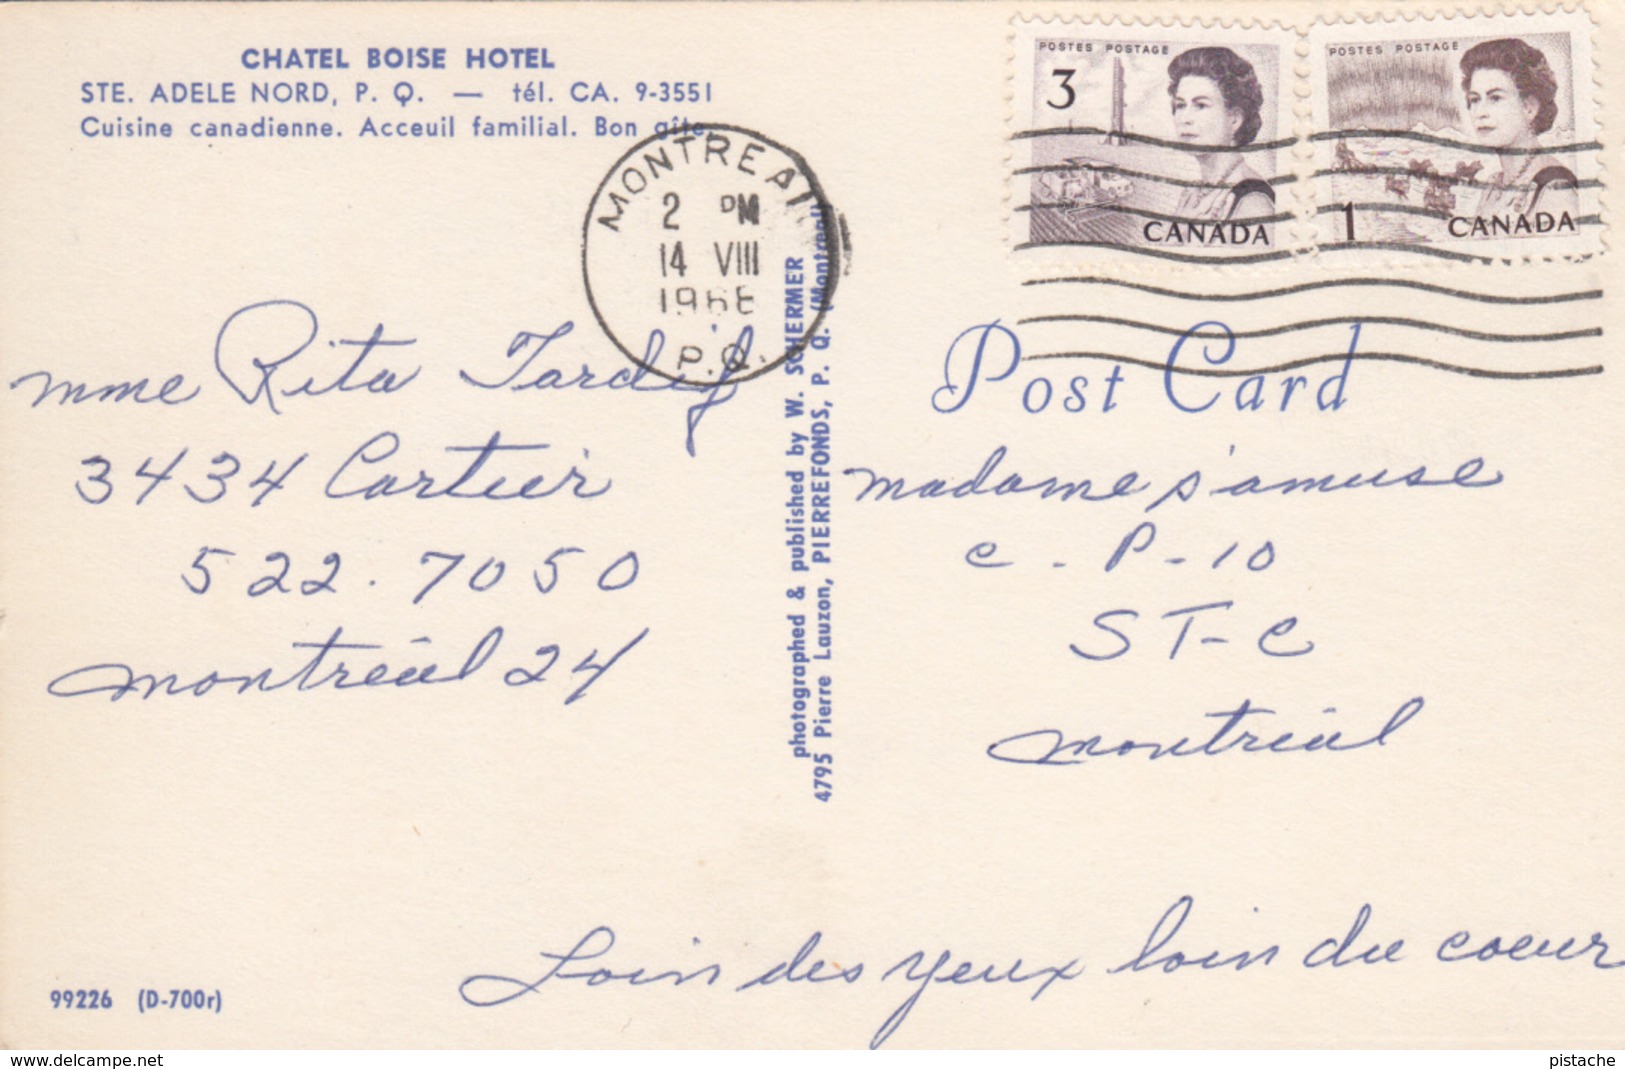 CHATEL BOISE HOTEL
STE. ADELE NORD, P. Q. — tél. CA. 9-3551
Cuisine canadienne. Acceuil familial. Bon gîte.
POSTES POSTAGE
3
CANADA
POSTES POSTAGE
1
CANADA
MONTREAL
2 PM
14 VIII
P.Q.
mme Rita Tardif
3434 Cartier
522.7050
montréal 24
photographed & published by W. SCHERMER
4795 Pierre Lauzon, PIERREFONDS, P. Q. (Montreal)
Post Card
madame s'amuse
c.P-10
ST-C
montréal
Loin des yeux loin du coeur
99226 (D-700r)
www.delcampe.net
pistache